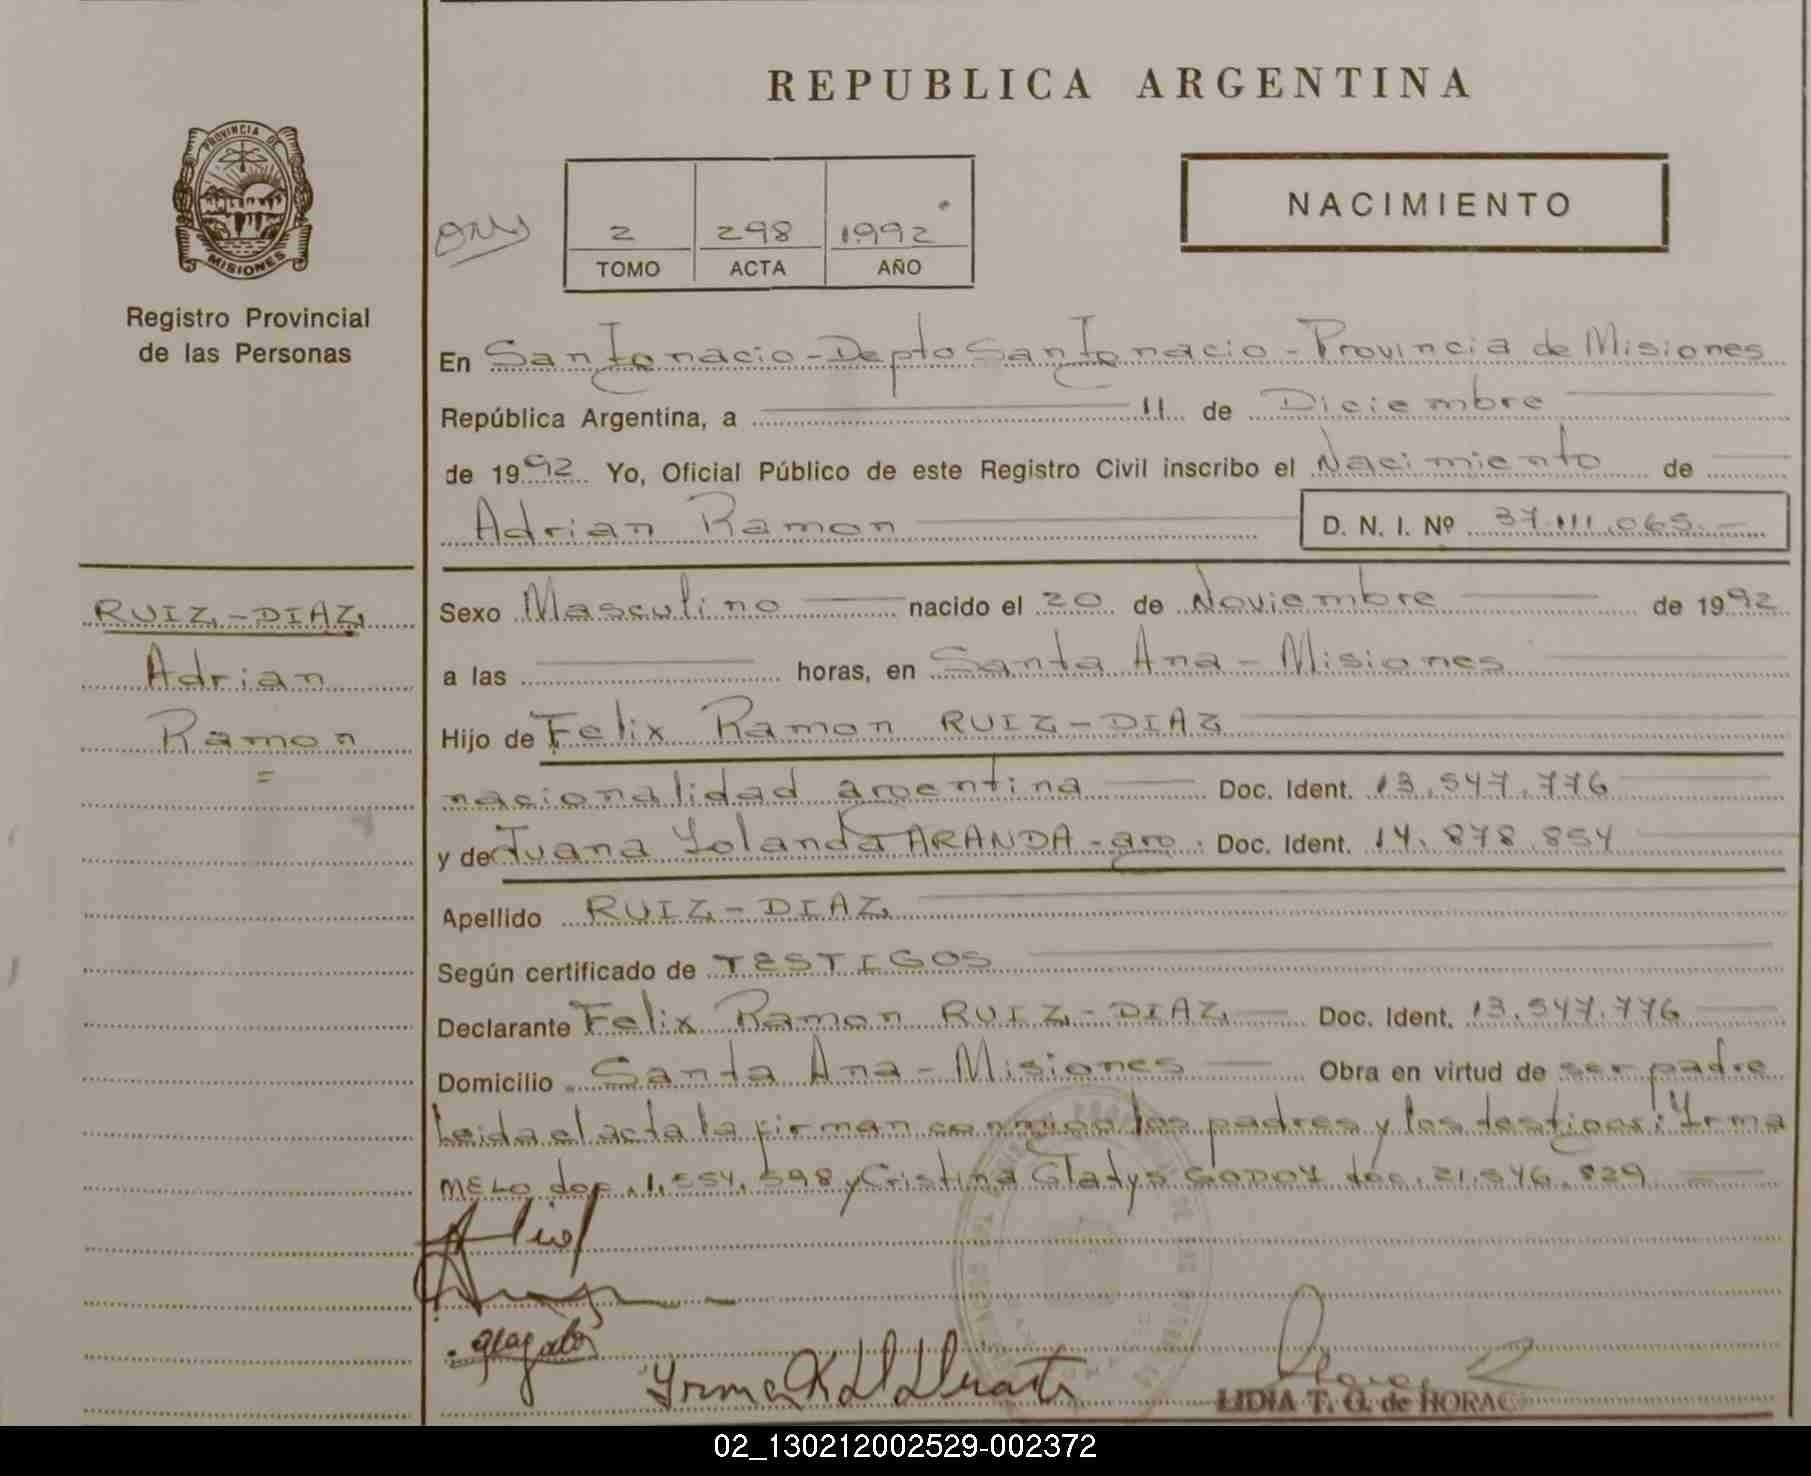 REPUBLICA ARGENTINA
PROVINCIA DE
MISIONES
Registro Provincial
de las Personas
NACIMIENTO
2 298 1992
TOMO ACTA AÑO
En San Ignacio - Depto San Ignacio - Provincia de Misiones
República Argentina, a 11 de Diciembre
de 1992 Yo, Oficial Público de este Registro Civil inscribo el Nacimiento de
Adrian Ramon D. N. I. Nº 37.111.065.-
RUIZ-DIAZ
Adrian
Ramon
=
Sexo Masculino nacido el 20 de Noviembre de 1992
a las horas, en Santa Ana - Misiones
Hijo de Felix Ramon RUIZ-DIAZ
nacionalidad argentina Doc. Ident. 13.547.776
y de Juana Yolanda ARANDA - arg. Doc. Ident. 14.878.854
Apellido RUIZ-DIAZ
Según certificado de TESTIGOS
Declarante Felix Ramon RUIZ-DIAZ Doc. Ident. 13.547.776
Domicilio Santa Ana - Misiones Obra en virtud de ser padre
Leida el acta la firman conmigo los padres y los testigos: Yrma
MELO doc. 1.554.598 y Cristina Gladys GODOY doc. 21.546.829
LIDIA T. G. de HORAC
02_130212002529-002372